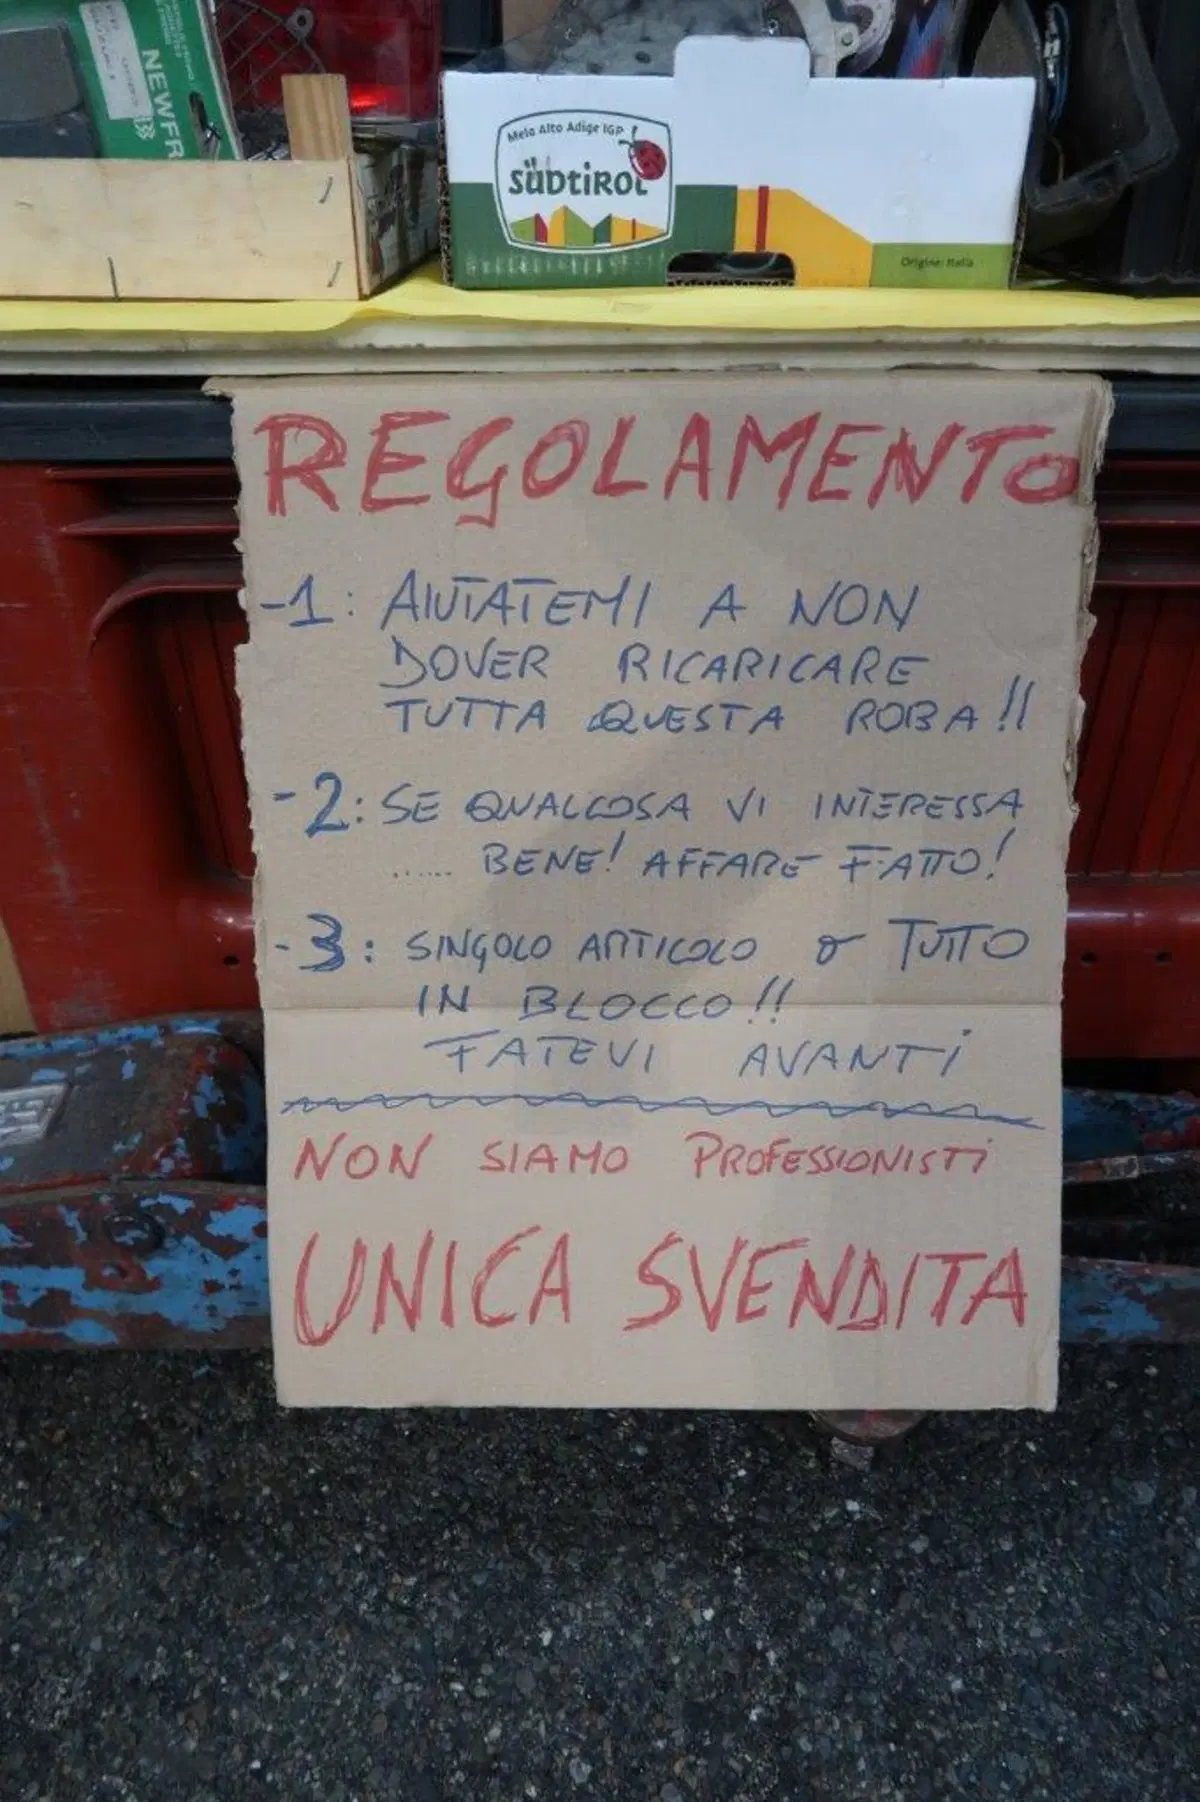 NEWFR
Mela Alto Adige IGP
SÜDTIROL
Origine: Italia
REGOLAMENTO
-1: AIUTATEMI A NON
DOVER RICARICARE
TUTTA QUESTA ROBA!!
-2: SE QUALCOSA VI INTERESSA
...... BENE! AFFARE FATTO!
-3: SINGOLO ARTICOLO O TUTTO
IN BLOCCO!!
FATEVI AVANTI
NON SIAMO PROFESSIONISTI
UNICA SVENDITA